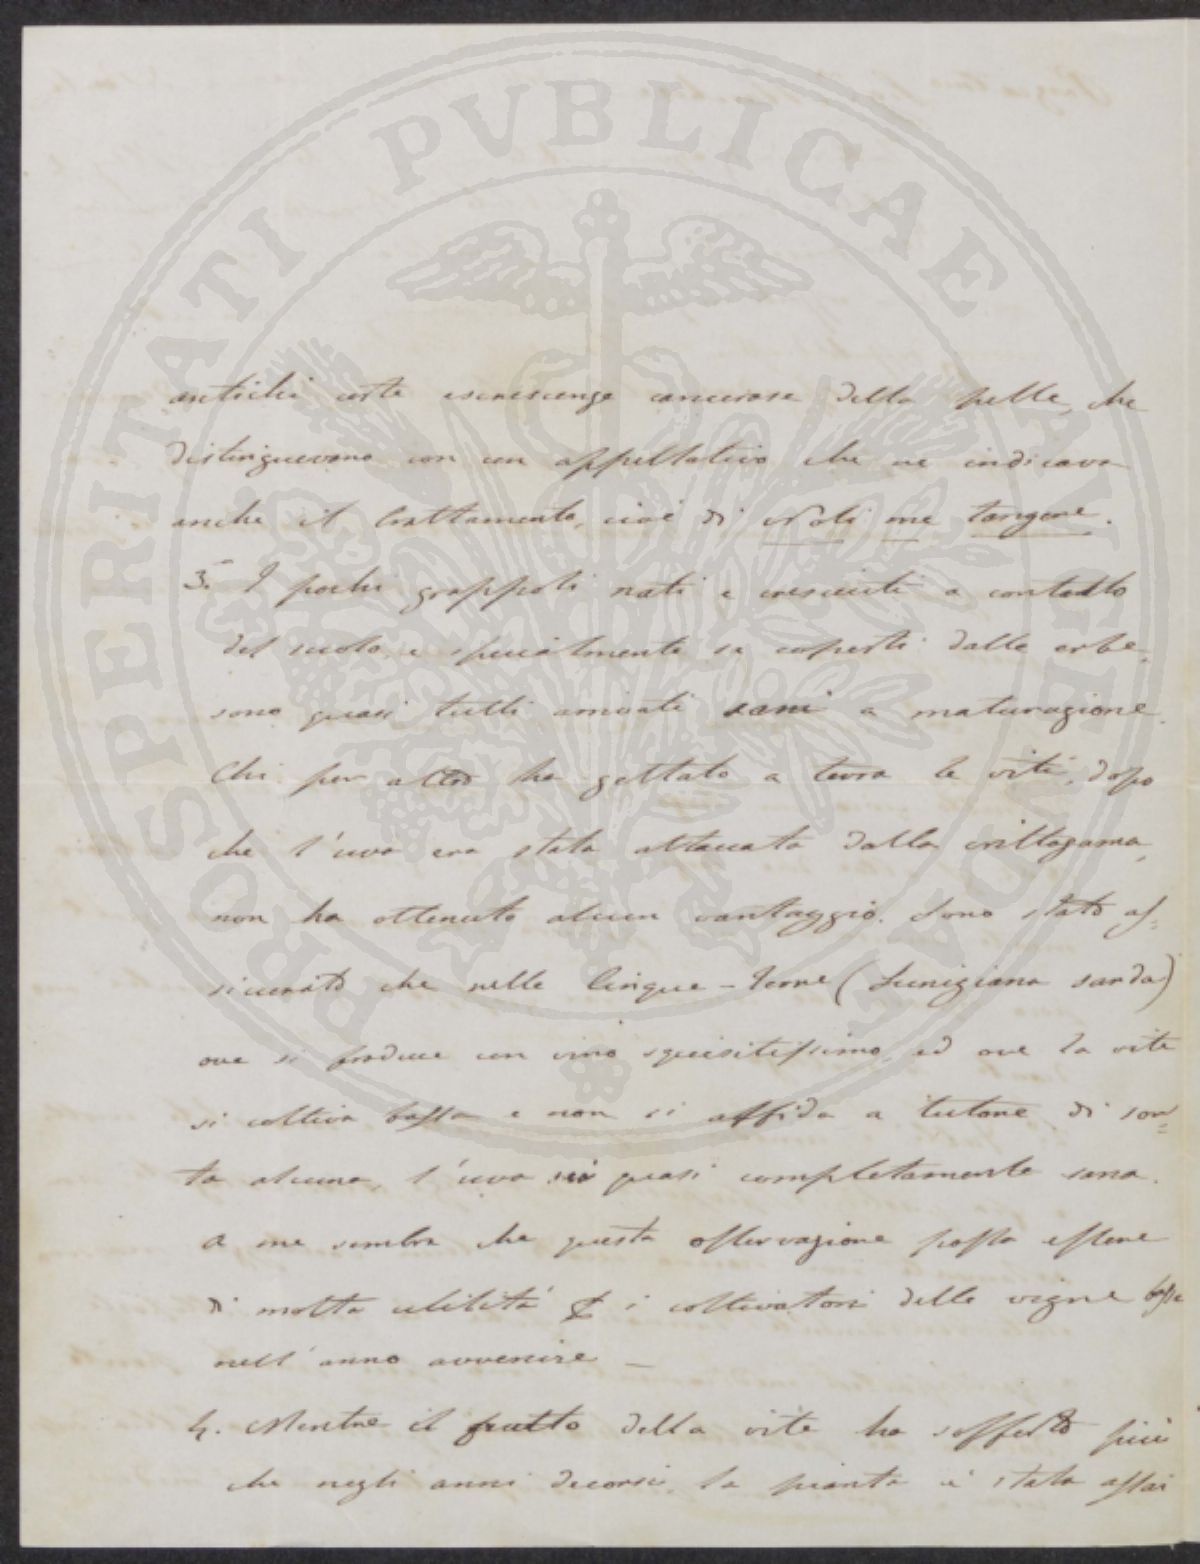 PROSPERITATI PUBLICAE AUGENDAE
antichi certe escrescenze cancerose della pelle, che
distinguevano con un appellativo che ne indicava
anche il trattamento, cioè di Noli me tangere.
3. I pochi grappoli nati e cresciuti a contatto
del suolo, e specialmente se coperti dalle erbe,
sono quasi tutti arrivati sani a maturazione.
Chi per altro ha gettato a terra le viti, dopo
che l'uva era stata attaccata dalla crittogama,
non ha ottenuto alcun vantaggio. Sono stato as=
sicurato che nelle Cinque-Terre (Lunigiana sarda)
ove si produce un vino squisitissimo, ed ove la vite
si coltiva bassa e non si affida a tutore di sor=
ta alcuna, l'uva quasi completamente sana.
A me sembra che questa osservazione possa essere
di molta utilità i coltivatori delle vigne basse
nell'anno avvenire —
4. Mentre il frutto della vite ha sofferto più
che negli anni decorsi, la pianta è stata assai